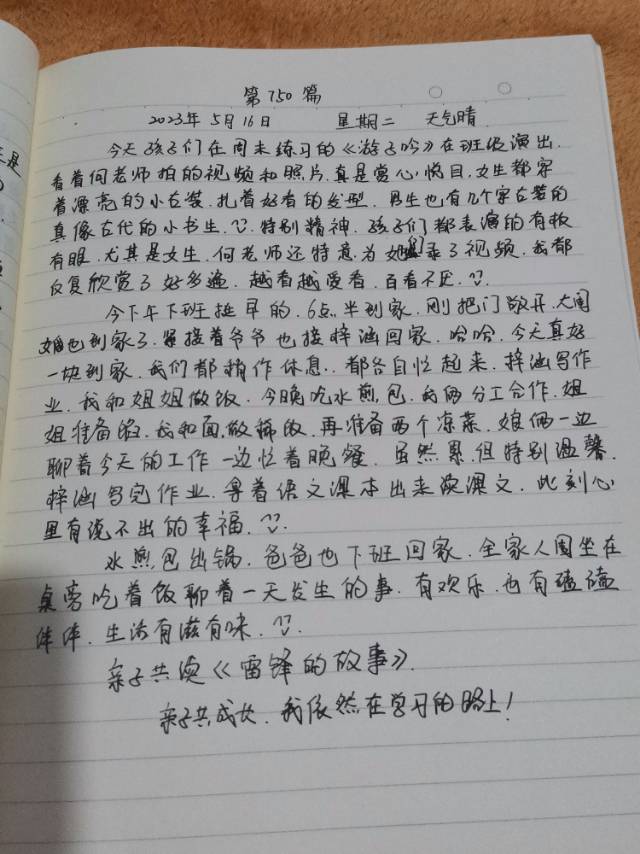 第750篇
2023年5月16日 星期二 天气晴
今天孩子们在周末练习的《游子吟》在班级演出,
看着何老师拍的视频和照片,真是赏心悦目,女生都穿
着漂亮的小古装,扎着好看的发型,男生也有几个穿古装的
真像古代的小书生,特别精神,孩子们都表演的有板
有眼,尤其是女生,何老师还特意为她们录了视频,我都
反复欣赏了好多遍,越看越爱看,百看不厌.
今下午下班挺早的,6点半到家,刚把门敞开,大闺
女也到家了,紧接着爷爷也接梓涵回家,哈哈,今天真好
一块到家,我们都稍作休息,都各自忙起来,梓涵写作
业,我和姐姐做饭,今晚吃水煎包,我俩分工合作,姐
姐准备馅,我和面,做稀饭,再准备两个凉菜,娘俩一边
聊着今天的工作一边忙着晚餐,虽然累,但特别温馨,
梓涵写完作业,拿着语文课本出来读课文,此刻心
里有说不出的幸福.
水煎包出锅,爸爸也下班回家,全家人围坐在
桌旁吃着饭聊着一天发生的事,有欢乐,也有磕磕
绊绊,生活有滋有味.
亲子共读《雷锋的故事》.
亲子共成长,我依然在学习的路上!